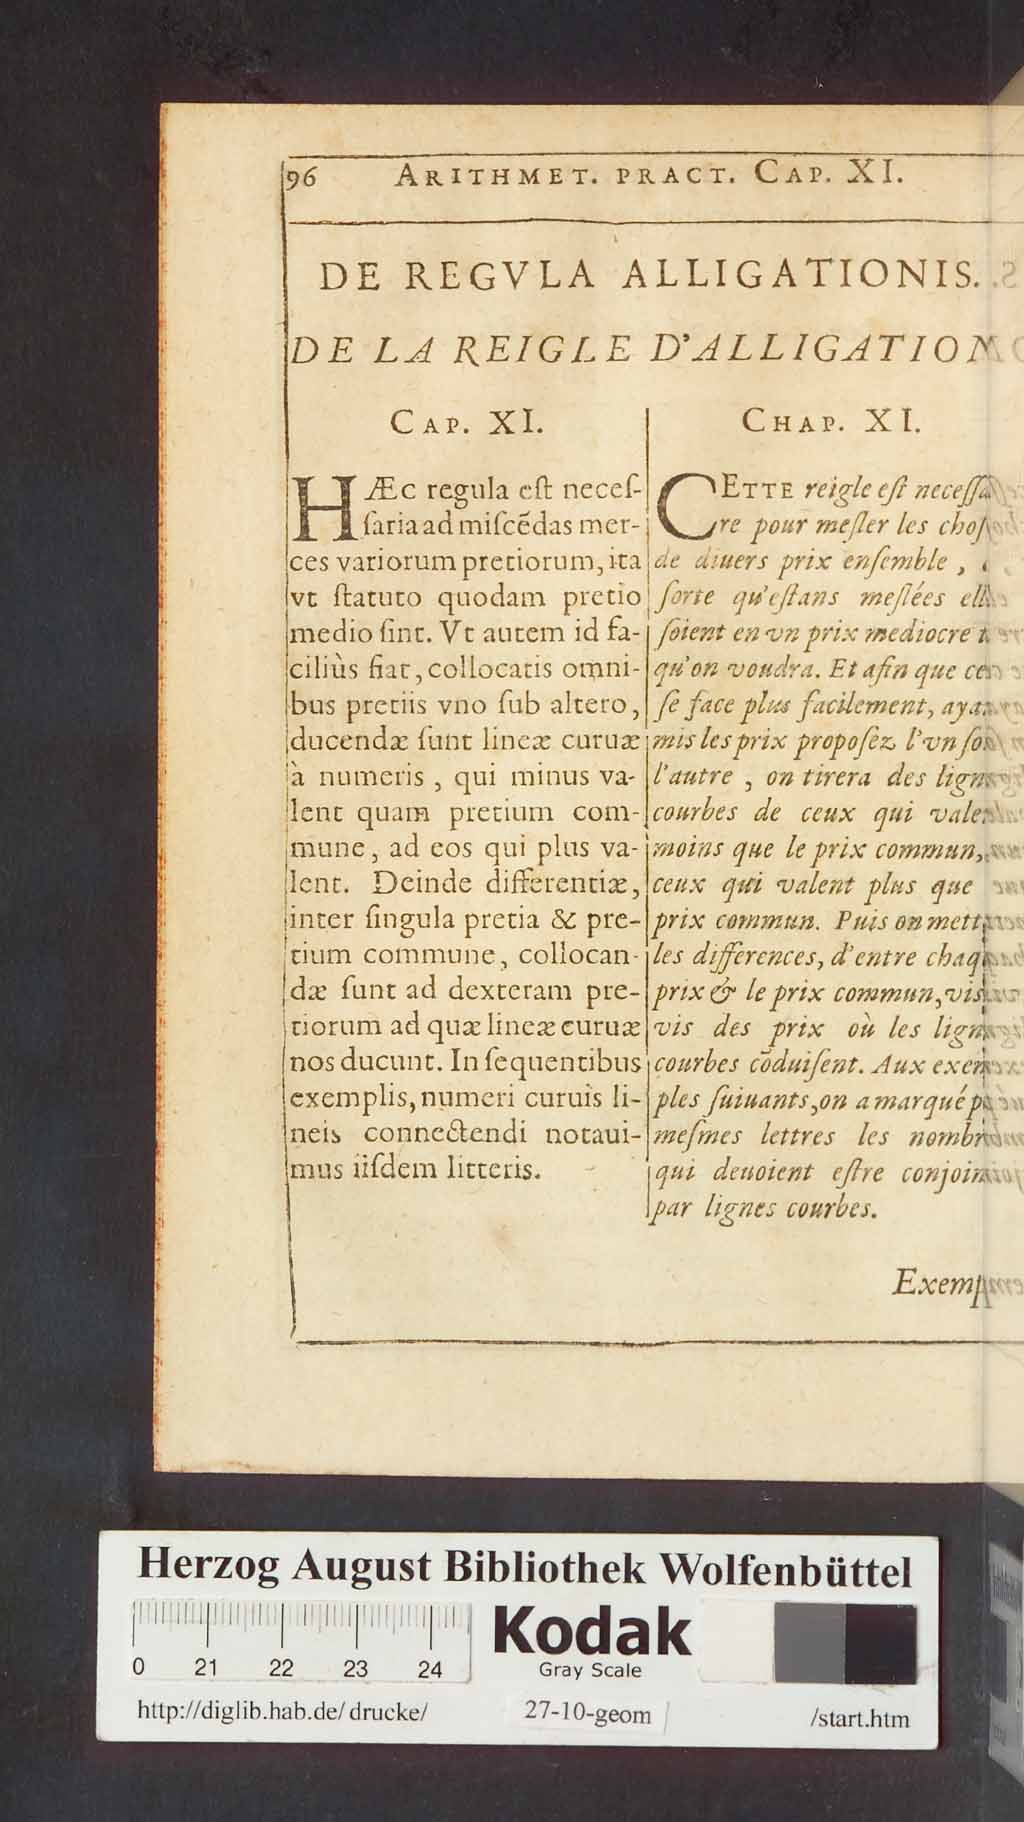 96 ARITHMET. PRACT. CAP. XI.
DE REGVLA ALLIGATIONIS.
DE LA REIGLE D'ALLIGATION
CAP. XI.
HÆc regula eſt neceſ-
ſaria ad miſcẽdas mer-
ces variorum pretiorum, ita
vt ſtatuto quodam pretio
medio ſint. Vt autem id fa-
ciliùs fiat, collocatis omni-
bus pretiis vno ſub altero,
ducendæ ſunt lineæ curuæ
à numeris, qui minus va-
lent quam pretium com-
mune, ad eos qui plus va-
lent. Deinde differentiæ,
inter ſingula pretia & pre-
tium commune, collocan-
dæ ſunt ad dexteram pre-
tiorum ad quæ lineæ curuæ
nos ducunt. In ſequentibus
exemplis, numeri curuis li-
neis connectendi notaui-
mus iiſdem litteris.
CHAP. XI.
CETTE reigle eſt
re pour meſler les
de diuers prix enſemble,
ſorte qu'eſtans meſlées
ſoient en vn prix mediocre
qu'on voudra. Et afin que
ſe face plus facilement,
mis les prix propoſez l'vn
l'autre, on tirera des
courbes de ceux qui
moins que le prix commun,
ceux qui valent plus que
prix commun. Puis on
les differences, d'entre
prix & le prix commun,
vis des prix où les
courbes cõduiſent. Aux exem
ples ſuiuants, on a marqué
meſmes lettres les
qui deuoient eſtre
par lignes courbes.
Herzog August Bibliothek Wolfenbüttel
0 21 22 23 24
Kodak
Gray Scale
http://diglib.hab.de/drucke/ 27-10-geom /start.htm